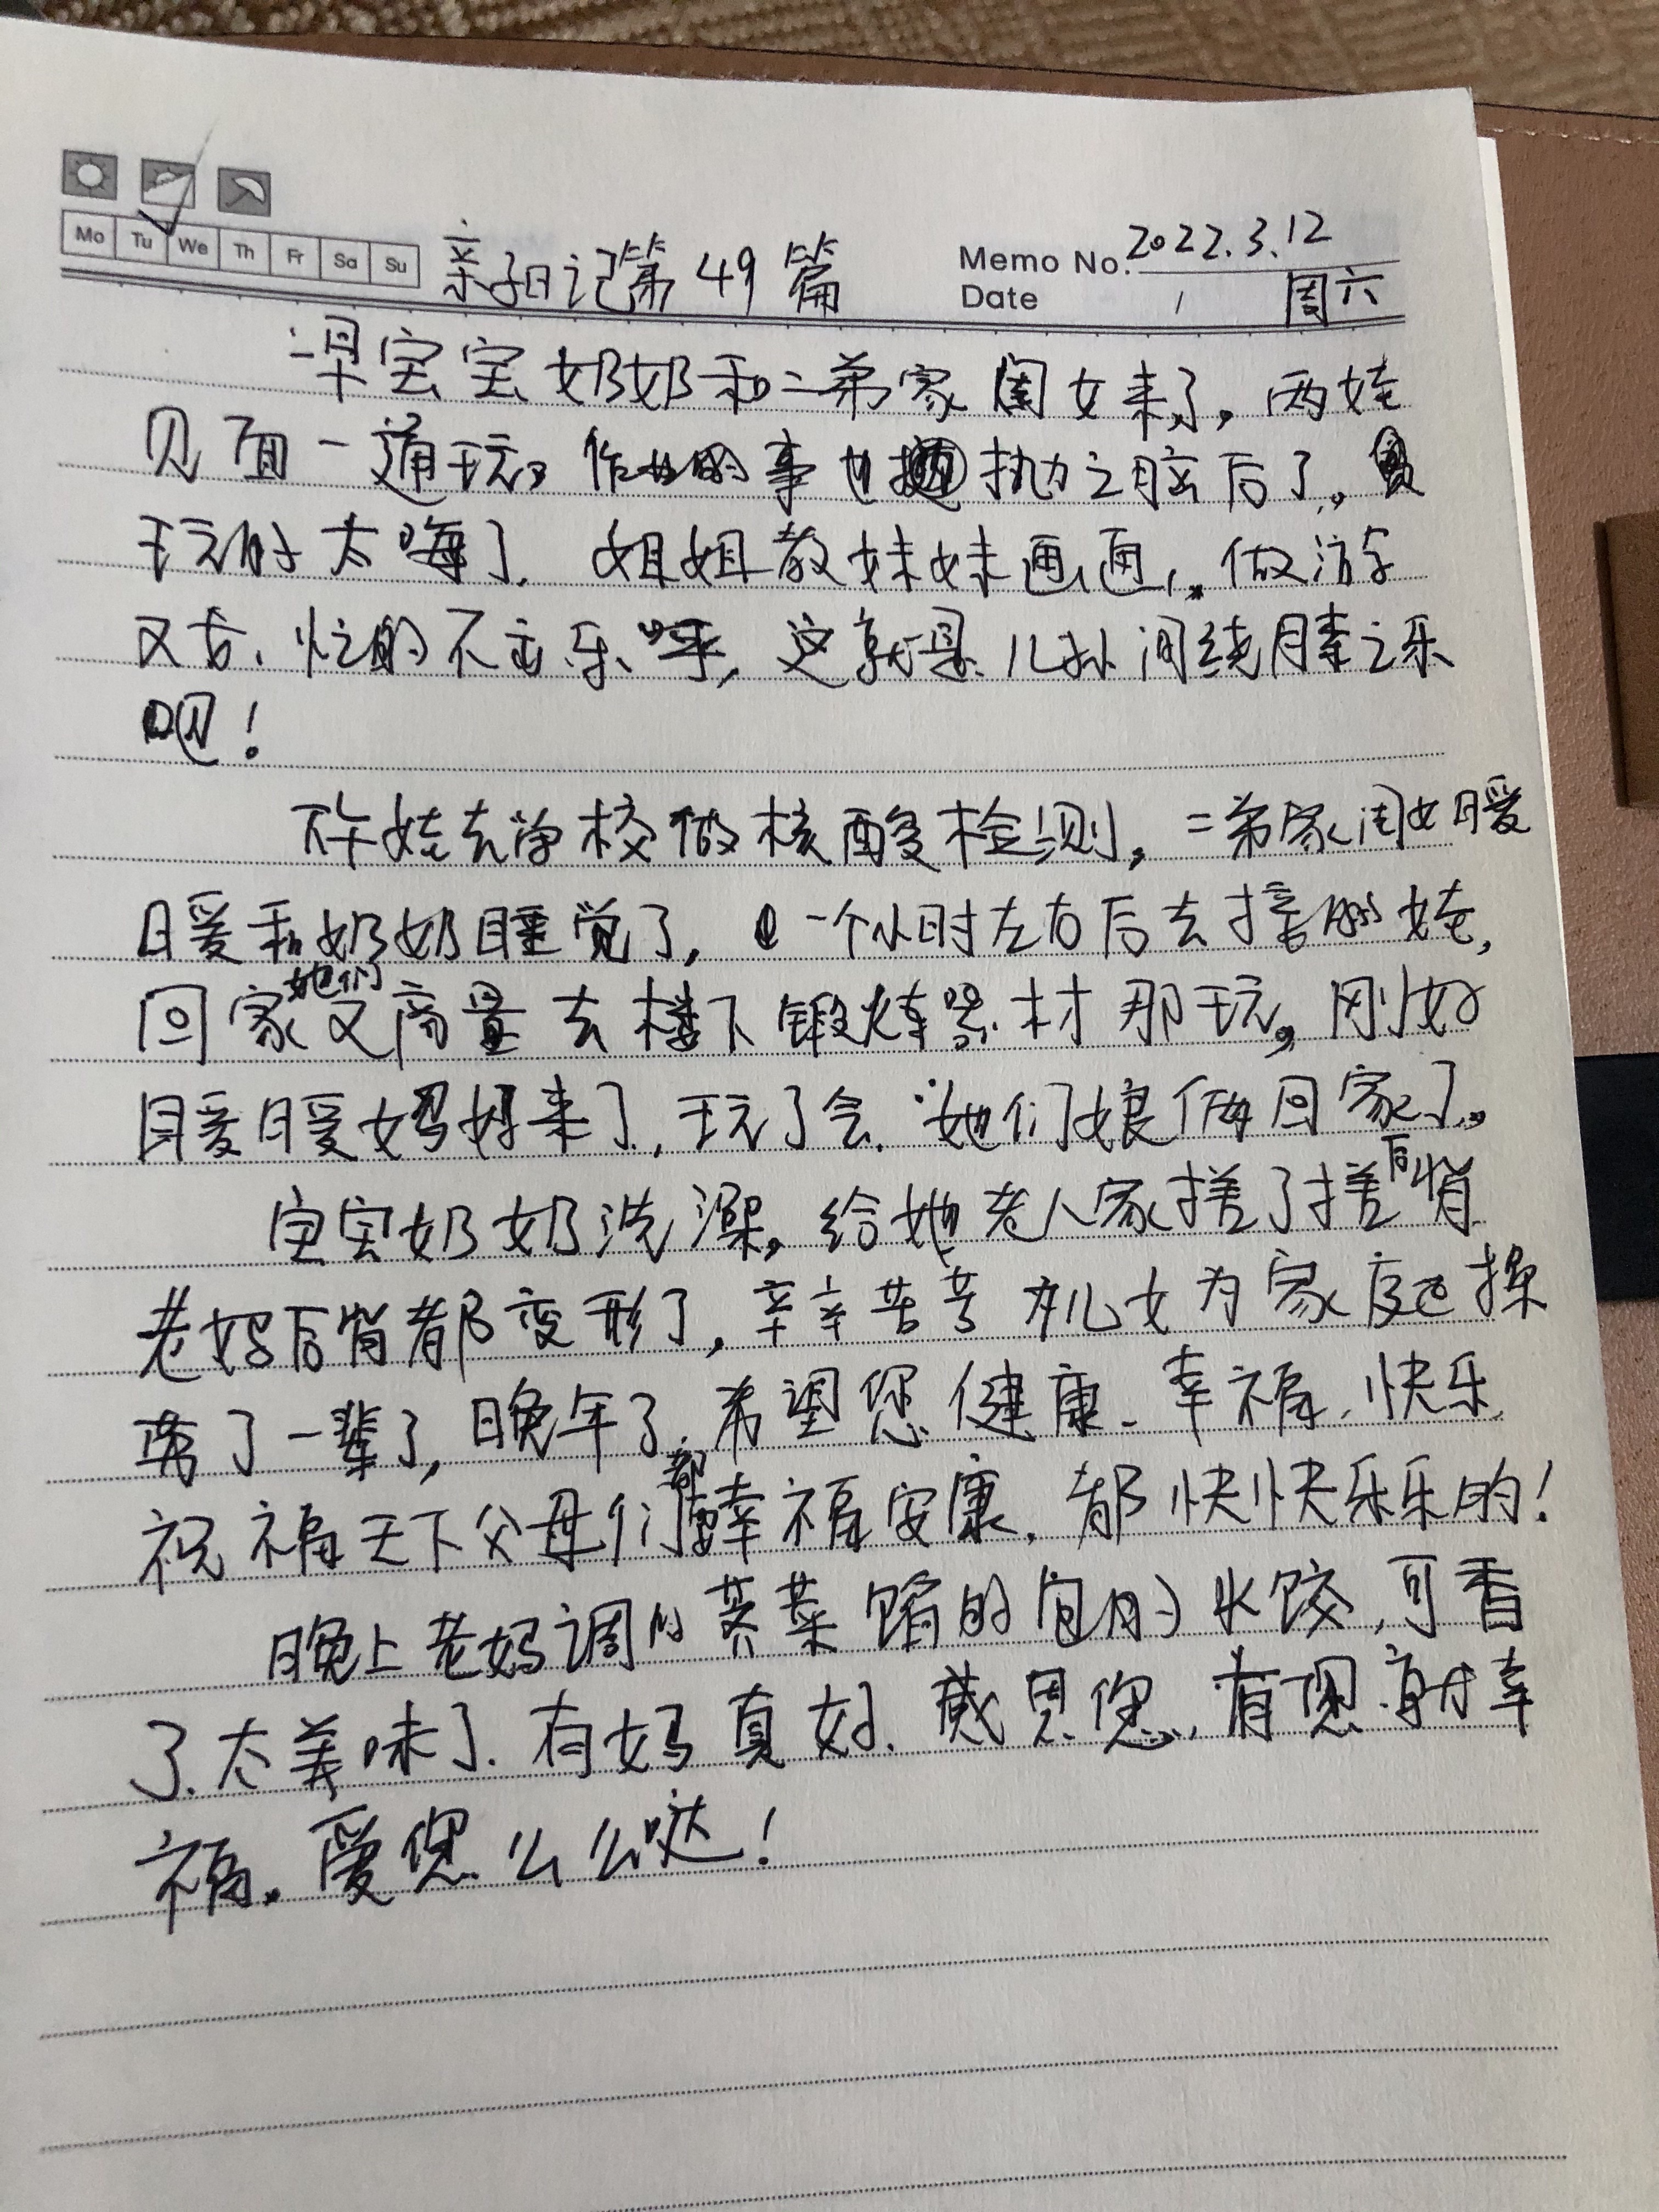 Mo Tu We Th Fr Sa Su
亲子日记第49篇
Memo No. 2022.3.12
Date / 周六
一早宝宝奶奶和二弟家闺女来了，两娃
见面一通玩，作业的事也抛之脑后了。
玩的太嗨了，姐姐教妹妹画画，做游
又去，忙的不亦乐呼，这就是儿孙间绕膝之乐
吧！
下午娃去学校做核酸检测，二弟家闺女暖
暖和奶奶睡觉了，一个小时左右后去接娃，
回家她们又商量去楼下锻炼器材那玩，刚好
暖暖妈妈来了，玩了会，她们娘俩回家了。
宝宝奶奶洗澡，给她老人家搓了搓后背
老妈后背都变形了，辛辛苦苦为儿女为家庭操
劳了一辈了，晚年了，希望您健康、幸福、快乐，
祝福天下父母们都幸福安康，都快快乐乐的！
晚上老妈调的荠菜馅的包的水饺，可香
了，太美味了，有妈真好，感恩您，有您真幸
福，爱您么么哒！